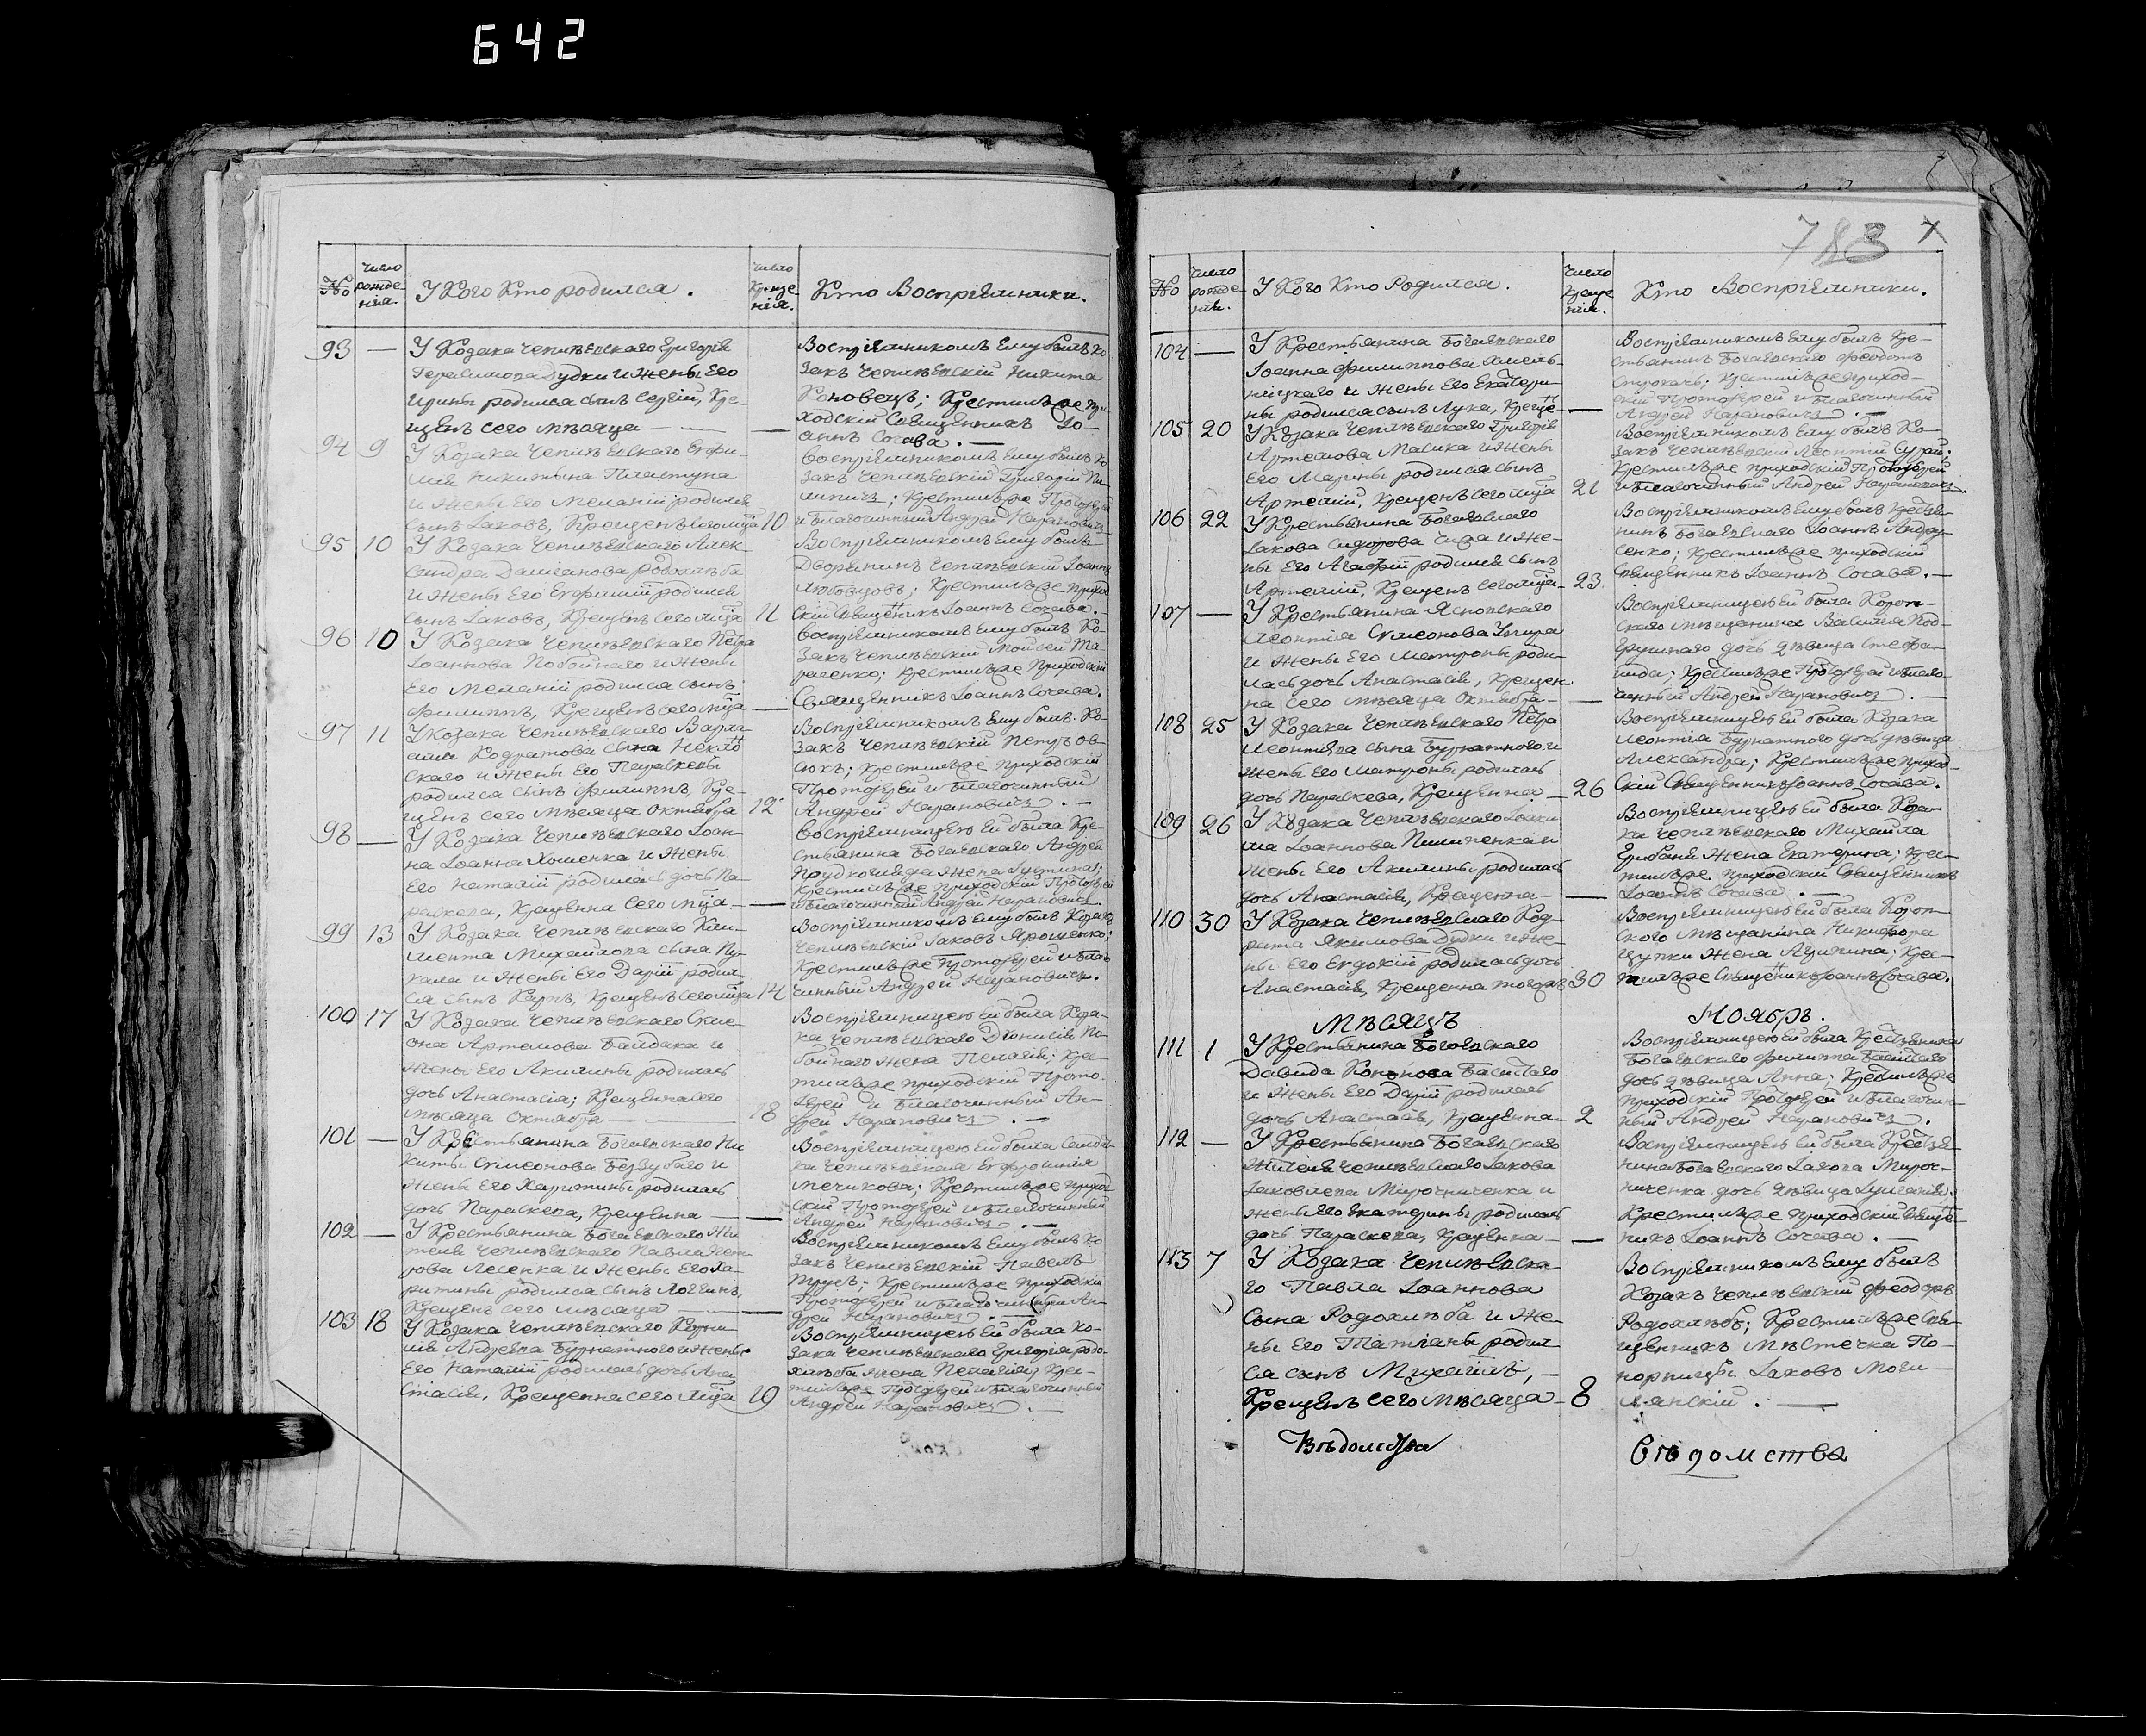 642
783
№
число рожде-
нія.
У Кого Кто родился.
число Креще
нія.
Кто Воспріемники.
93 —
У Козака Чепилѣвскаго Григорія
Герасимова Дудки и жены Его
Ирины родился сынъ Сергій, Кре-
щенъ сего мѣсяца — —
Воспріемникомъ Ему былъ Ко
закъ Чепилѣвскій Никита
Коновецъ; Крестилъ
ходскій Священникъ Іо-
аннъ Сочава. —
94 9
У Козака Чепилѣвскаго Ефи-
мія Никитина
и жены Его Меланіи родился
сынъ Іаковъ, Крещенъ сего мца 10
Воспріемникомъ Ему былъ Ко
закъ Чепилѣвскій Григорій Пи-
липичъ; Крестилъ же Протоіерей
и Благочинный Андрей
95 10
У Козака Чепилѣвскаго Алек-
сандра Даміанова Родохлѣба
и жены Его Евфиміи родился
сынъ Іаковъ, Крещенъ сего мца 11
Воспріемникомъ Ему былъ
Дворянинъ Чепилѣвскій Іоаннъ
Крестилъ же приход
скій Священникъ Іоаннъ Сочава. —
96 10
У Козака Чепилѣвскаго Петра
Іоаннова Побойнаго и жены
Его Меланіи родился сынъ
Филиппъ, Крещенъ сего мца —
Воспріемникомъ Ему былъ Ко-
закъ Чепилѣвскій Моисей Та-
расенко; Крестилъ же Приходскій
Священникъ Іоаннъ Сочава.
97 11
У Козака Чепилѣвскаго Варла-
ама Кодратова сына
скаго и жены Его Параскевы
родился сынъ Филиппъ, Кре-
щенъ сего мѣсяца Октября 12
Воспріемникомъ Ему былъ Ко-
закъ Чепилѣвскій Петръ Ов-
сюкъ; Крестилъ же приходскій
Протоіерей и Благочинный
Андрей
98 —
У Козака Чепилѣвскаго Іоан-
на Іоанна Хоменка и жены
Его Наталіи родилась дочь Па-
раскева, Крещенна сего мца —
Воспріемницею Ей была Кре-
стьянина Богаевскаго Андрея
жена Іустина;
Крестилъ же приходскій Протоіерей
и Благочинный Андрей
99 13
У Козака Чепилѣвскаго Кли-
мента Михайлова сына Пу-
кала и жены Его Даріи родил-
ся сынъ Карпъ, Крещенъ сего мца 14
Воспріемникомъ Ему былъ Козакъ
Чепилѣвскій Іаковъ Ярошенко;
Крестилъ же Протоіерей и Благо
чинный Андрей
100 17
У Козака Чепилѣвскаго Симе-
она Артемова Байдака и
жены Его Акилины родилась
дочь Анастасія; Крещенна сего
мѣсяца Октября 18
Воспріемницею Ей была Коза-
ка Чепилѣвскаго Діонисія По-
бойнаго жена Пелагія; Кре-
стилъ же приходскій Прото-
іерей и Благочинный Ан-
дрей
101 —
У Крестьянина Богаевскаго Ни
киты Симеонова Беззубаго и
жены Его Харитины родилась
дочь Параскева, Крещенна —
Воспріемницею Ей была
Чепилѣвская Евфросинія
Мечикова; Крестилъ же приход-
скій Протоіерей и Благочинный
Андрей
102 —
У Крестьянина Богаевскаго Жи
теля Чепилѣвскаго Павла
рова Лесенка и жены Его Ха-
ритины родился сынъ Логгинъ,
Крещенъ сего мѣсяца —
Воспріемникомъ Ему былъ Ко
закъ Чепилѣвскій Павелъ
Трусъ; Крестилъ же приходскій
Протоіерей и Благочинный Ан-
дрей
103 18
У Козака Чепилѣвскаго Корни-
лія Андреева Бурнатного и жены
Его Наталіи родилась дочь Ана-
стасія, Крещенна сего мца 19
Воспріемницею Ей была Ко-
зака Чепилѣвскаго Григорія Родо-
хлѣба жена Пелагія; Кре-
стилъ же Протоіерей и Благочинный
Андрей
№
число рожде-
нія.
У Кого Кто Родился.
число Креще
нія.
Кто Воспріемники.
104 —
У Крестьянина Богаевскаго
Іоанна Филиппова Хмель-
ницкаго и жены Его Екатери-
ны родился сынъ Лука, Креще- —
Воспріемникомъ Ему былъ Кре-
стьянинъ Богаевскаго Феодотъ
Крестилъ же Приход-
скій Протоіерей и Благочинный
Андрей
105 20
У Козака Чепилѣвскаго Григорія
Артемова Масика и жены
Его Марины родился сынъ
Артемій, Крещенъ сего мца 21
Воспріемникомъ Ему былъ Ко-
закъ Чепилѣвскій Леонтій Сурай;
Крестилъ же приходскій Протоіерей
и Благочинный Андрей
106 22
У Крестьянина Богаевскаго
Іакова Сидорова и же-
ны Его Агафіи родился сынъ
Артемій, Крещенъ сего мца 23.
Воспріемникомъ Ему былъ Крестья-
нинъ Богаевскаго Іоаннъ Андру-
сенко; Крестилъ же приходскій
Священникъ Іоаннъ Сочава. —
107 —
У Крестьянина Ясновскаго
Леонтія Симеонова
и жены Его Матроны роди-
лась дочь Анастасія, Крещен-
на сего мѣсяца Октября —
Воспріемницею Ей была Короп-
скаго мѣщанина Василія Под-
дочь дѣвица Стефа-
нида; Крестилъ же Протоіерей и Благо-
чинный Андрей
108 25
У Козака Чепилѣвскаго Петра
Леонтіева сына Бурнатного и
жены Его Матроны родилась
дочь Параскева, Крещенна — 26
Воспріемницею Ей была Козака
Леонтія Бурнатного дочь дѣвица
Александра; Крестилъ же приход-
скій Священникъ Іоаннъ Сочава.
109 26
У Козака Чепилѣвскаго Іоаки-
ма Іоаннова Пилипенка и
жены Его Акилины родилась
дочь Анастасія, Крещенна — —
Воспріемницею Ей была Коза-
ка Чепилѣвскаго Михаила
жена Екатерина; Крес-
тилъ же приходскій Священникъ
Іоаннъ Сочава. —
110 30
У Козака Чепилѣвскаго Код-
рата Якимова Дудки и же-
ны Его Евдокіи родилась дочь
Анастасія, Крещенна тогожъ 30
Воспріемницею Ей была Короп-
ского мѣщанина Никифора
Цупки жена Агрипина; Крес-
тилъ же Священникъ Іоаннъ Сочава.
Мѣсяцъ Ноябрь.
111 1
У Крестьянина Богаевскаго
Давида Кононова Басистаго
и жены Его Даріи родилась
дочь Анастасія, Крещенна — 2
Воспріемницею Ей была Крестьянина
Богаевскаго Филиппа Басистаго
дочь дѣвица Анна; Крестилъ же
приходскій Протоіерей и Благочин-
ный Андрей
112 —
У Крестьянина Богаевскаго
Жителя Чепилѣвскаго Іакова
Іаковлева Мирочниченка и
жены Его Екатерины родилась
дочь Параскева, Крещенна — —
Воспріемницею Ей была Крестья-
нина Богаевскаго Іакова Мироч-
ниченка дочь дѣвица
Крестилъ же приходскій Священ-
никъ Іоаннъ Сочава. —
113 7
У Козака Чепилѣвска-
го Павла Іоаннова
сына Родохлѣба и же-
ны Его Татіаны родил-
ся сынъ Михаилъ, —
Крещенъ сего мѣсяца — 8
Воспріемникомъ Ему былъ
Козакъ Чепилѣвскій Феодоръ
Родохлѣбъ; Крестилъ же Свя-
щенникъ Мѣстечка По-
норницы Іаковъ Моги-
лянскій. —
Вѣдомства
Вѣдомства